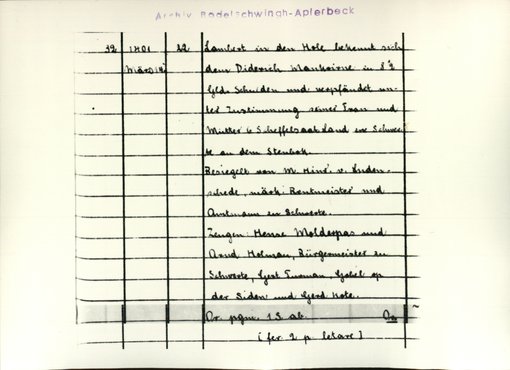 Archiv Bodelschwingh-Aplerbeck
32 1401 22 Lambert in den Hole bekennt sich
März 14 dem Diderich in 8½
Glds Schulden und verpfändet un-
ter Zustimmung seiner Frau und
Mutter 6 Scheffelsaat Land in Schwer-
te an dem
Besiegelt von M. Hinr. v. Luden-
schede, märk. Rentmeister und
Amtmann in Schwerte.
Zeugen: Henne und
Arnd Holman, Bürgermeister in
Schwerte, Gert Gobel op
der Siden und Gerd Hote.
Or. pgm. 1 S. ab.
[fer. 2 p. letare]